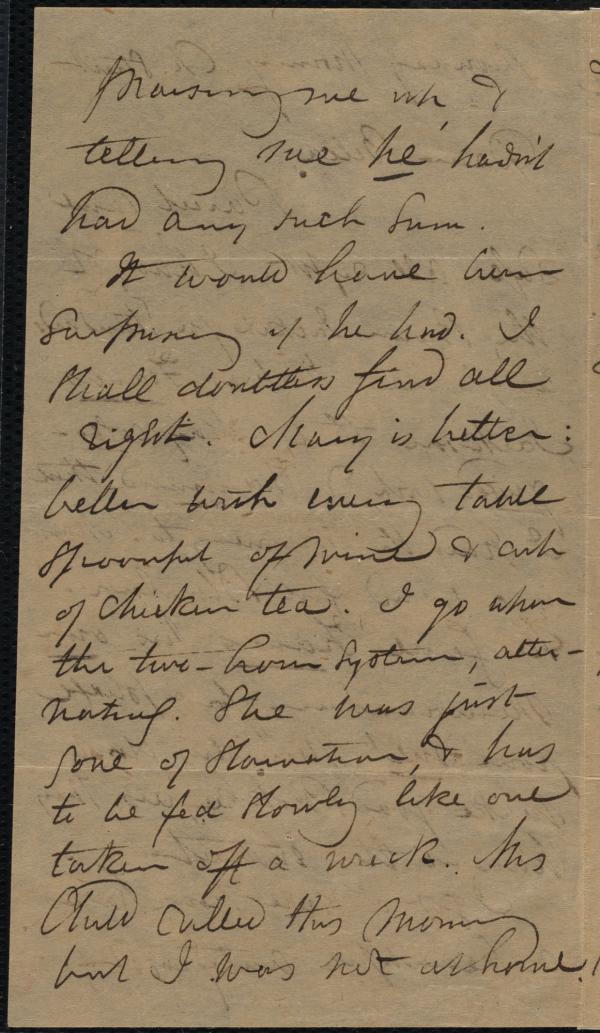 praising me up, &
telling me he hadn't
had any such sum.
It would have been
surprising if he had. I
shall doubtless find all
right. Mary is better:
better with every table
spoonful of wine & cup
of chicken tea. I go upon
the two-hour system, alter-
nating. She was just
gone of starvation, & has
to be fed slowly like one
taken off a wreck. Mrs
Child called this morning
but I was not at home.